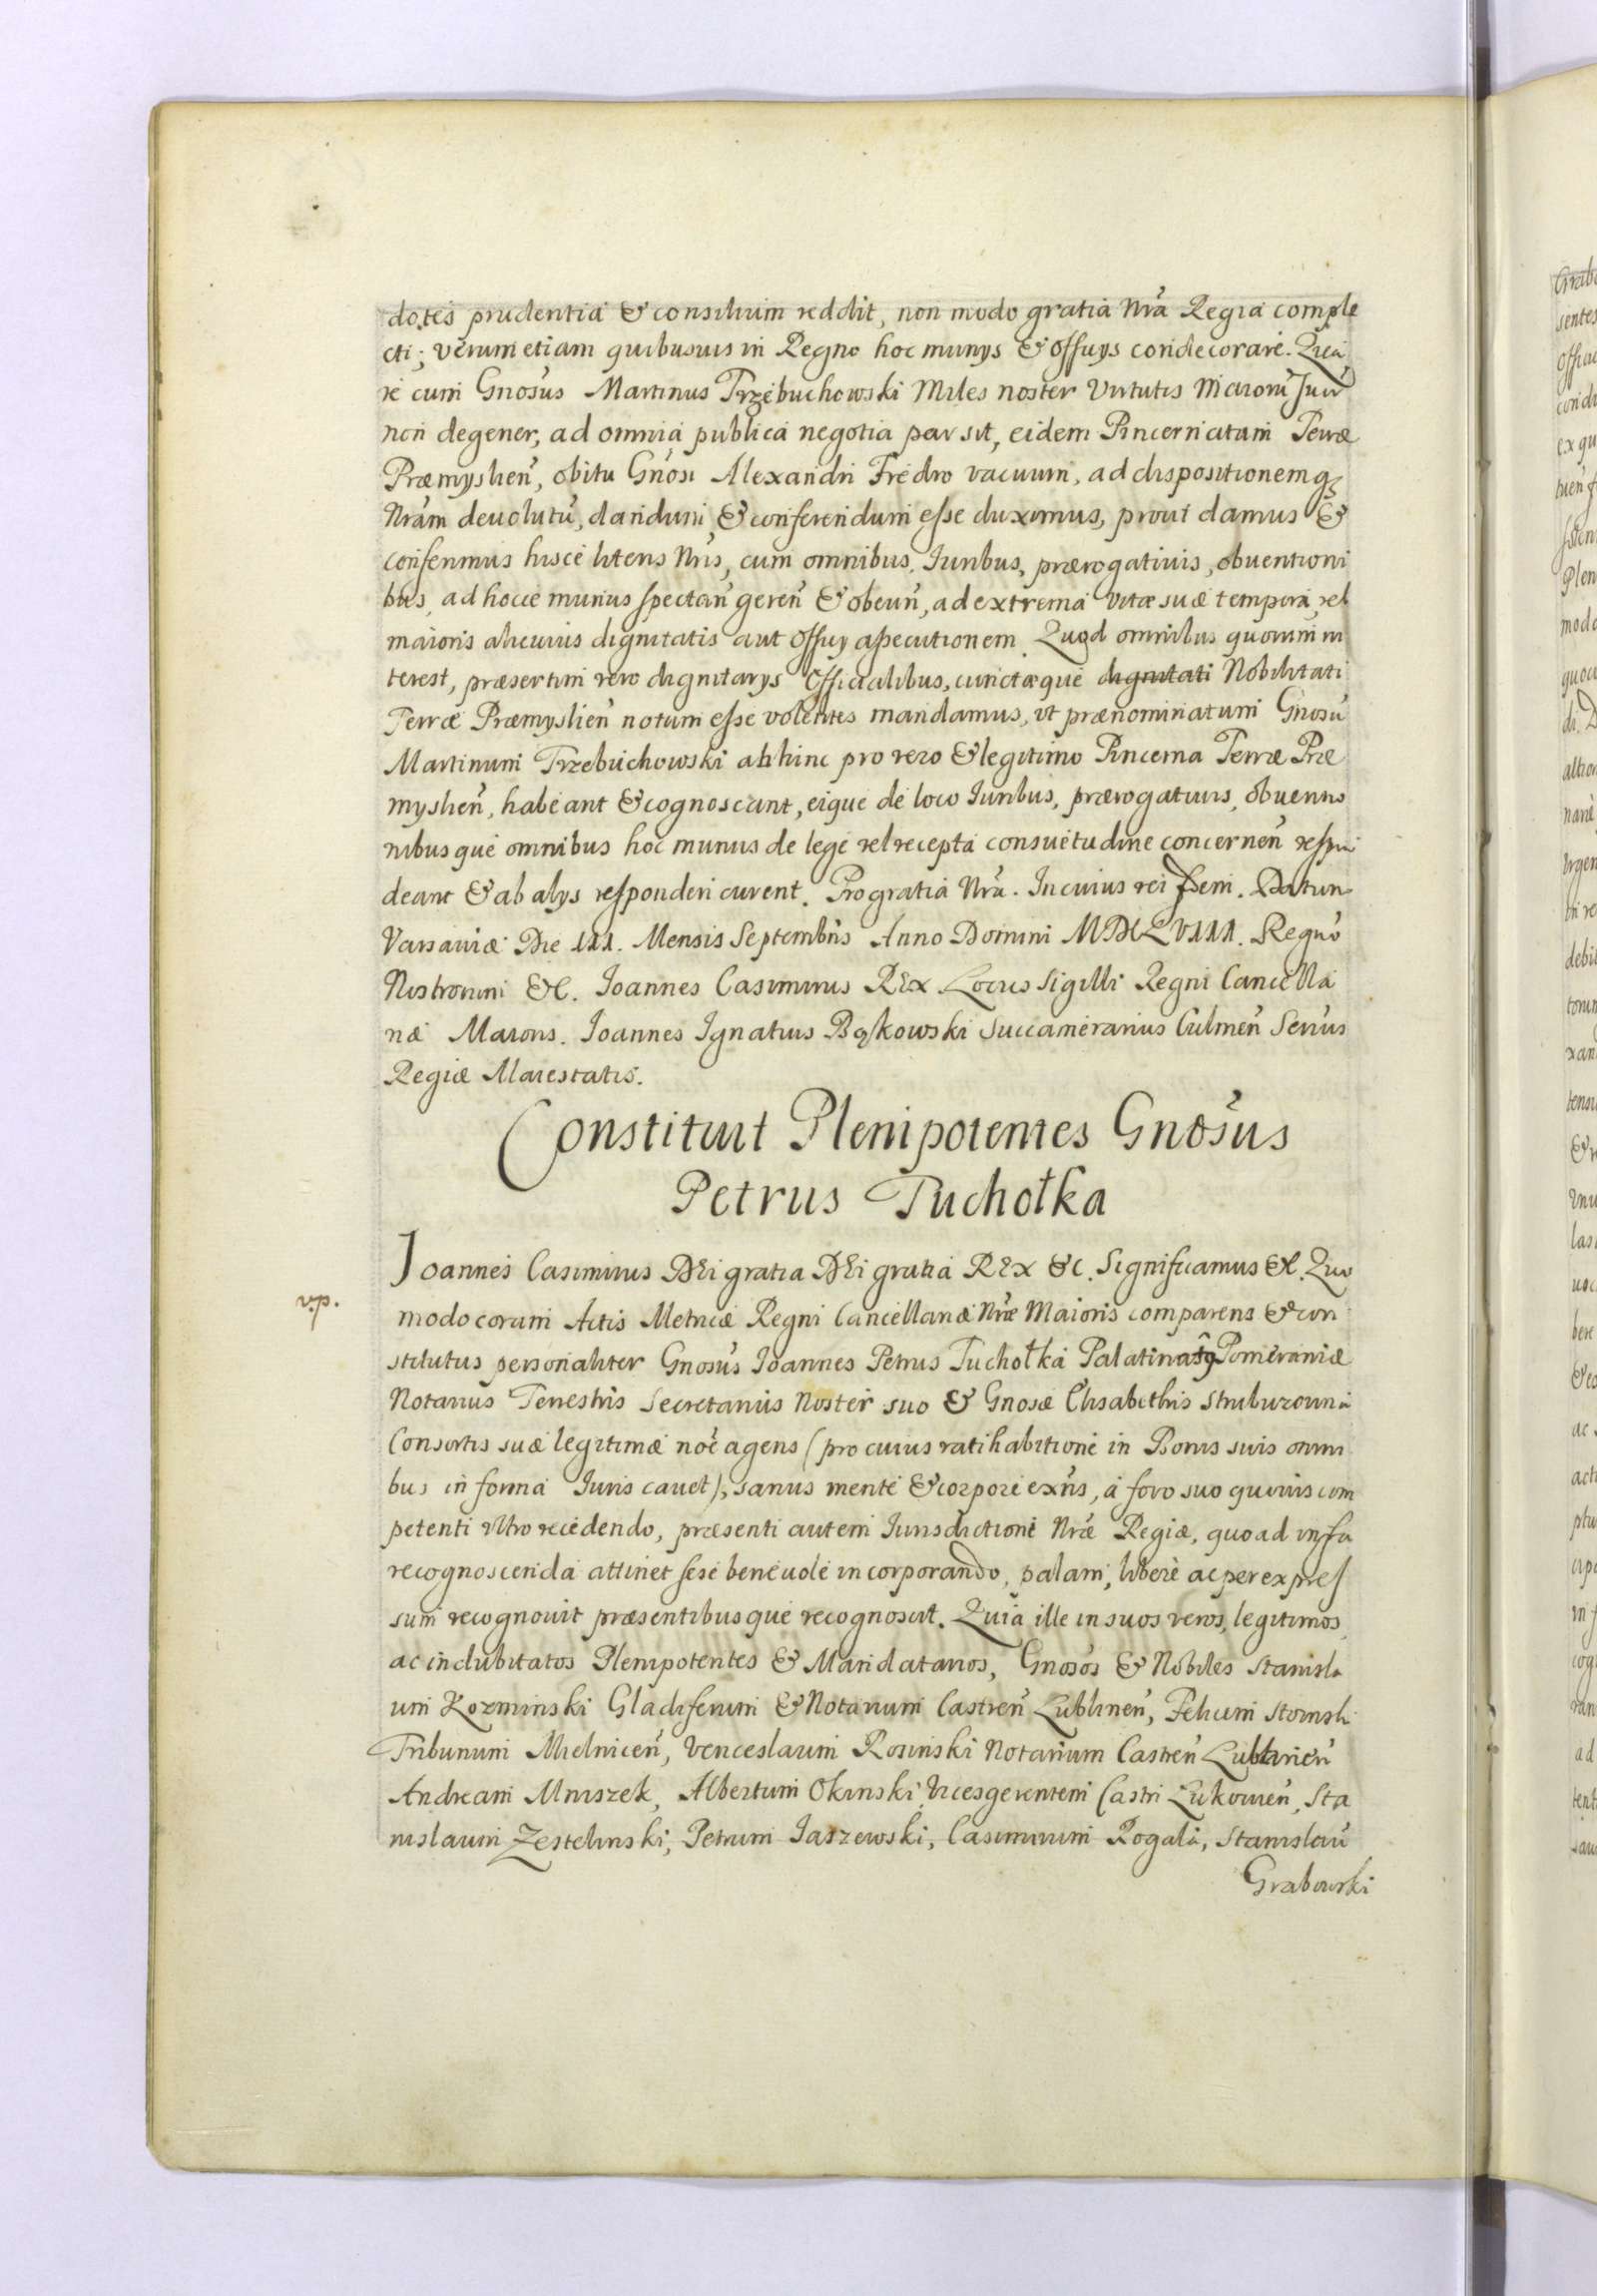 dotes prudentia & consilium reddit, non modo gratia Nrã Regia comple
cti; verum etiam quibusvis in Regno hoc munys & Officys condecorare. Qua
re cum Gnosus Martinus Trzebuchowski Miles noster Virtutis Maiorũ Suor
non degener, ad omnia publica negotia par sit, eidem Pincernatum Terræ
Præmyslien̄, obitu Gnosi Alexandri Fredro vacuum, ad dispositionemq3
Nrãm devolutũ, dandum & conferendum esse duximus, prout damus &
conferimus hisce literis Nrĩs, cum omnibus Iuribus, prærogativis, obventioni
bus, ad hocce munus spectan̄ geren̄ & obeun̄, ad extrema vitæ suæ tempora, vel
maioris alicuius dignitatis aut Officy assecutionem. Quod omnibus quorum in
terest, præsertim vero dignitarys Officialibus, cunctæque dignitati Nobilitati
Terræ Præmyslien̄ notum esse volentes mandamus, ut prænominatum Gnosũ
Martinum Trzebuchowski abhinc pro vero & legitimo Pincerna Terræ Præ
myslien̄, habeant & cognoscant, eique de loco Iuribus, prærogativis, obventio
nibusque omnibus hoc munus de lege vel recepta consuetudine concernen̄ respon
deant & ab alys responderi curent. Pro gratia Nrã. In cuius rei fidem. Datum
Varsaviæ Die III. Mensis Septembris Anno Domini MDCLVIII. Regno᷑
Nostrorum &c. Joannes Casimirus REX Locus Sigilli Regni Cancella
riæ Maioris. Joannes Ignatius Bąkowski Succamerarius Culmen̄ Scrius
Regiæ Maiestatis.
Constituit Plenipotentes Gnosus
Petrus Tuchołka
Joannes Casimirus DEi gratia DEi gratia REX &c. Significamus &c. Quo
v.p.
modo coram Actis Metricæ Regni Cancellariæ Nræ Maioris comparens & con
stitutus personaliter Gnosus Joannes Petrus Tuchołka Palatinatus Pomeraniæ
Notarius Terrestris Secretarius Noster suo & Gnosæ Elisabethis Struburowna
Consortis suæ legitimæ noẽ agens (pro cuius ratihabitione in Bonis suis omni
bus in forma Iuris cavet), sanus mente & corpore exñs, à foro suo quovis com
petenti ultro recedendo, præsenti autem Iurisdictioni Nræ Regiæ, quoad infra
recognoscenda attinet sese benevole incorporando, palam, liberè ac per expres
sum recognovit præsentibusque recognoscit. Quia ille in suos veros, legitimos,
ac indubitatos Plenipotentes & Mandatarios, Gnosos & Nobiles Stanisla
um Kozminski Gladiferum & Notarium Castren̄ Lublinen̄, Felicem Stoinski
Tribunum Mielnicen̄, Venceslaum Rosinski Notarium Castren̄ Lublinen̄
Andream Mniszek, Albertum Okinski Vicesgerentem Castri Łukowien̄, Sta
nislaum Zestelinski, Petrum Jaszewski, Casimirum Rogala, Stanislaũ
Grabowski